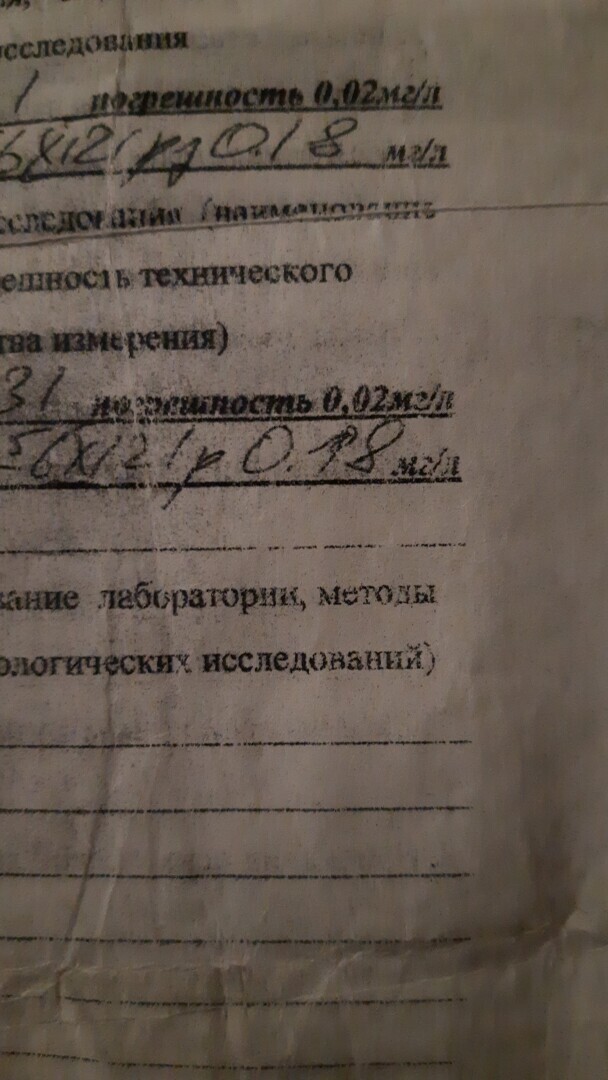 исследования
1 погрешность 0,02мг/л
0.18 мг/л
исследования (наименование
решность технического
тва измерения)
31 погрешность 0,02мг/л
0.18 мг/л
вание лаборатории, методы
ологических исследований)